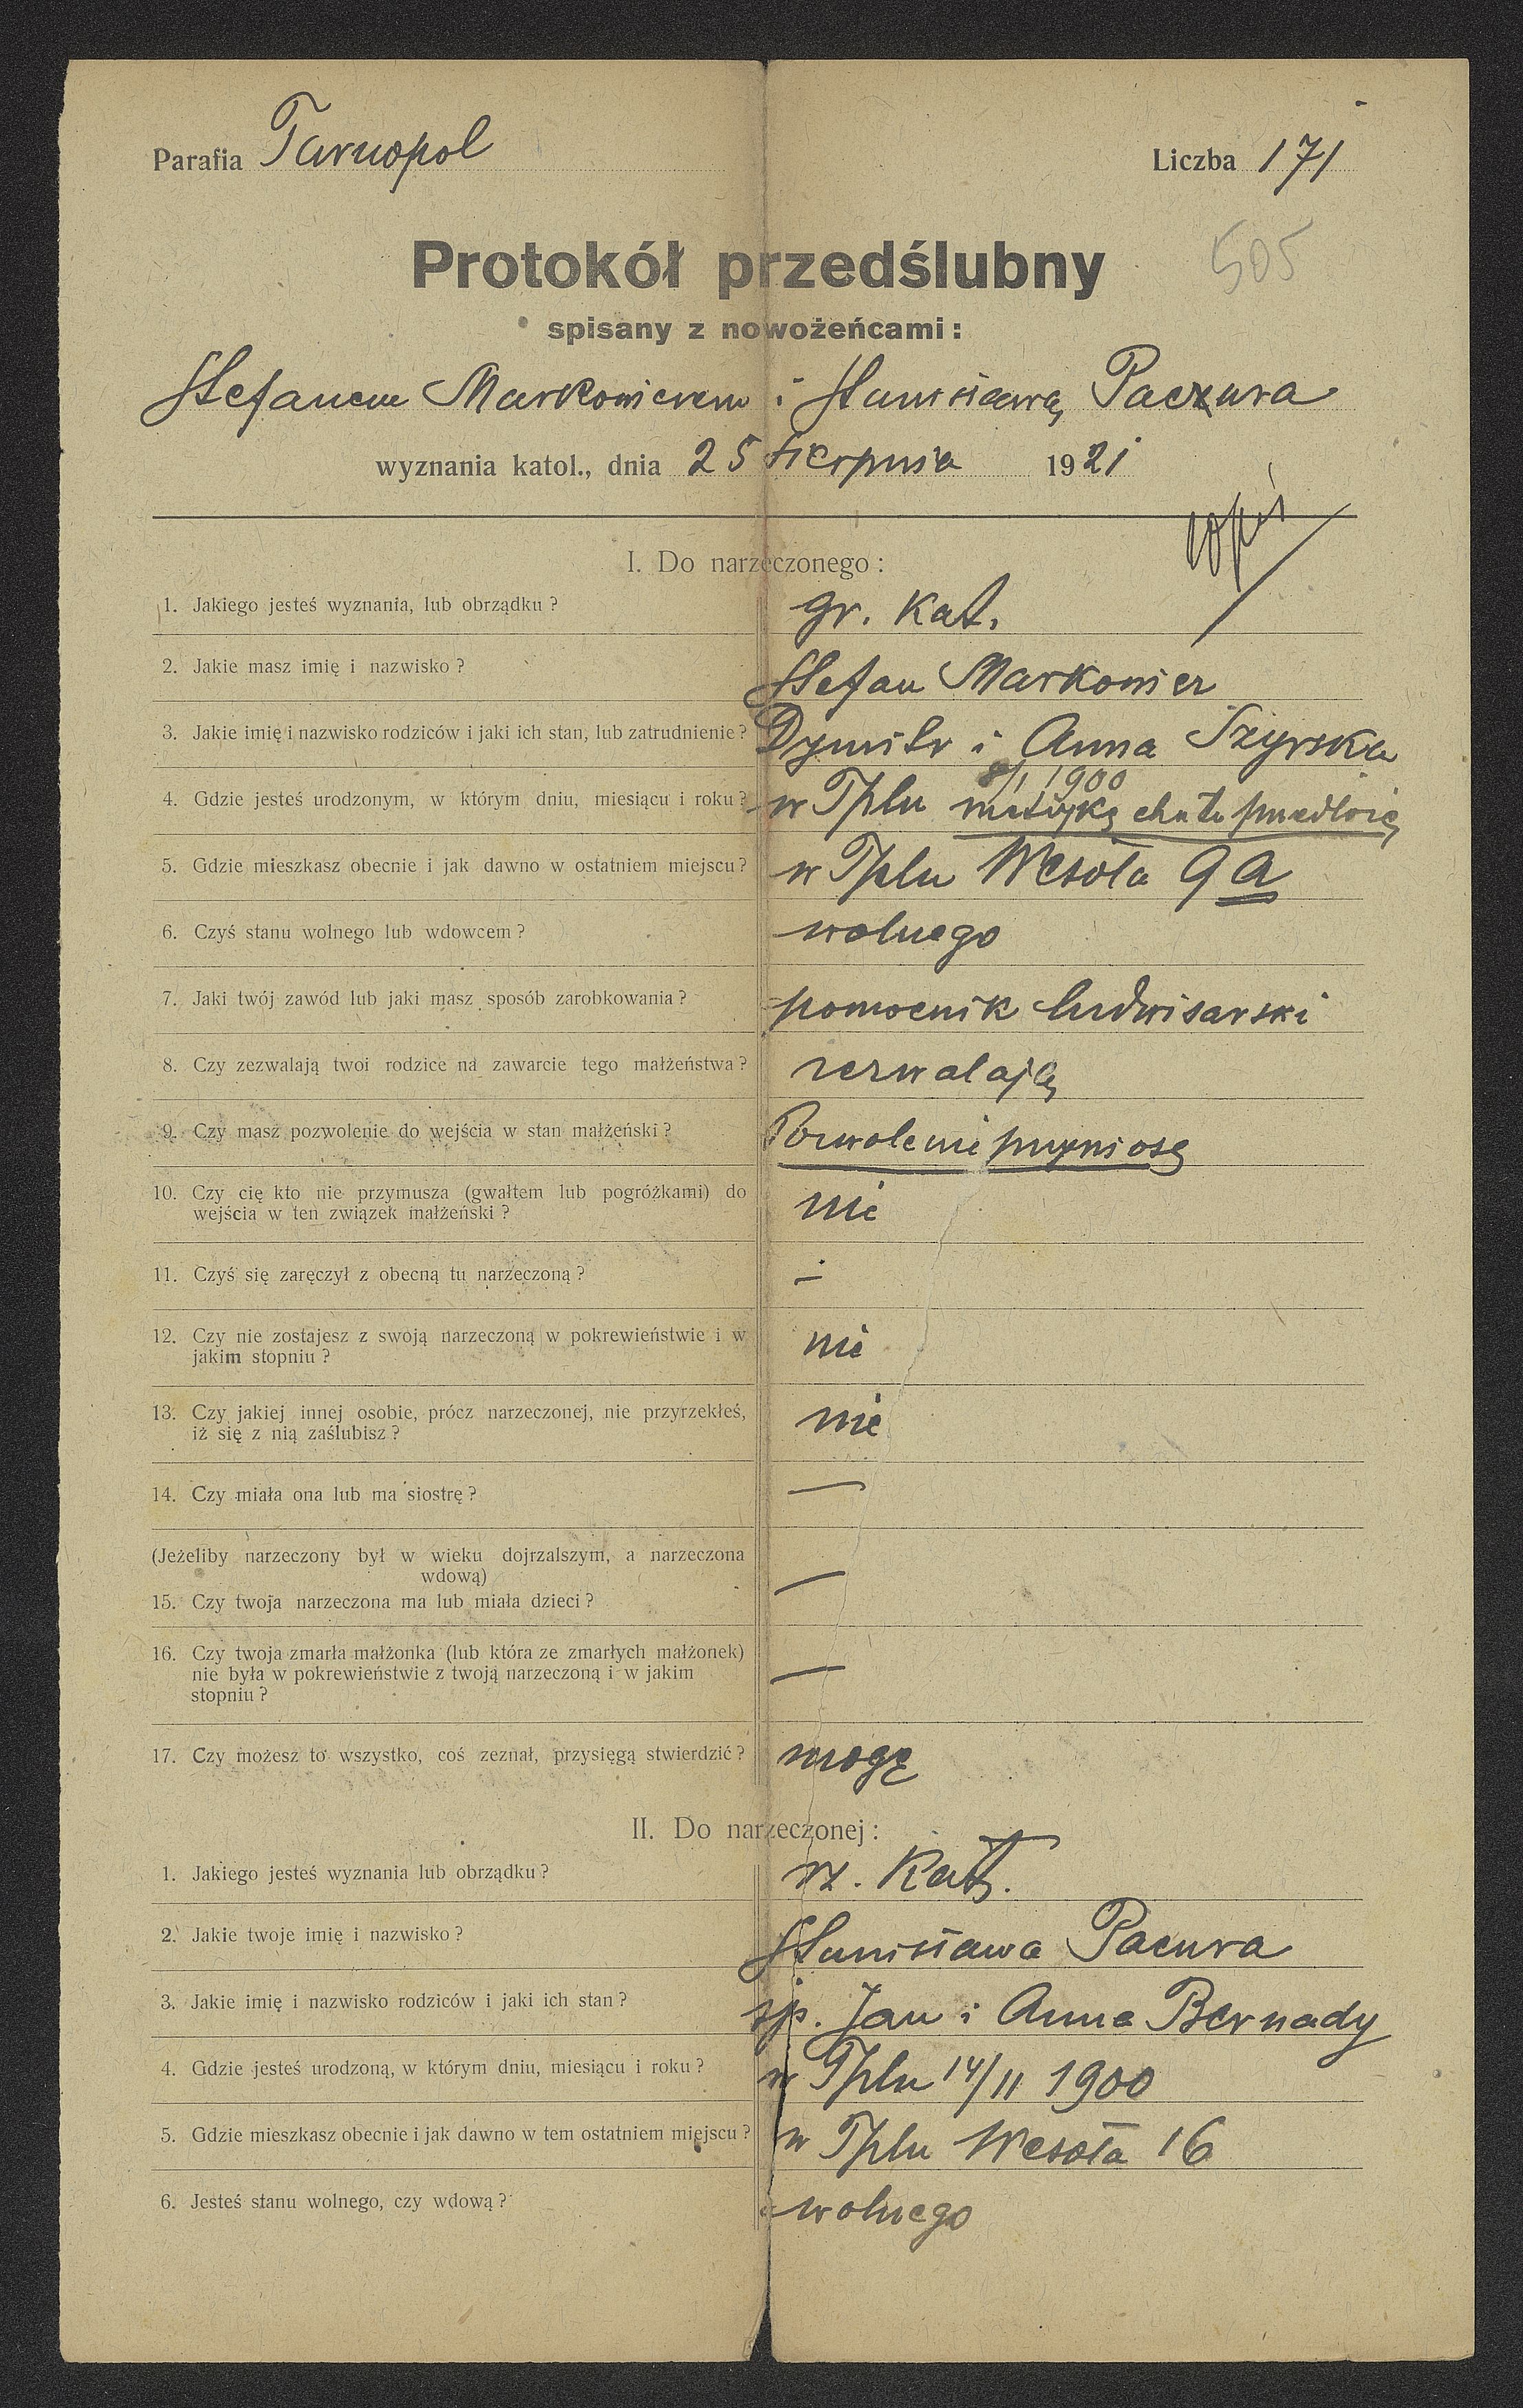 Parafia Tarnopol
Liczba 171
Protokół przedślubny
505
spisany z nowożeńcami:
Stefanem Markowiczem i Stanisławą Paczura
wyznania katol., dnia 25 sierpnia 1921
I. Do narzeczonego:
1. Jakiego jesteś wyznania, lub obrządku? gr. kat.
2. Jakie masz imię i nazwisko? Stefan Markowicz
3. Jakie imię i nazwisko rodziców i jaki ich stan, lub zatrudnienie? Dymitr i Anna Szyrska
8/1 1900
4. Gdzie jesteś urodzonym, w którym dniu, miesiącu i roku? w Tplu metrykę chrztu przedłoży
5. Gdzie mieszkasz obecnie i jak dawno w ostatniem miejscu? w Tplu Wesoła 9a
6. Czyś stanu wolnego lub wdowcem? wolnego
7. Jaki twój zawód lub jaki masz sposób zarobkowania? pomocnik ludwisarski
8. Czy zezwalają twoi rodzice na zawarcie tego małżeństwa? zezwalają
9. Czy masz pozwolenie do wejścia w stan małżeński? Pozwolenie przyniosę
10. Czy cię kto nie przymusza (gwałtem lub pogróżkami) do
wejścia w ten związek małżeński? nie
11. Czyś się zaręczył z obecną tu narzeczoną? –
12. Czy nie zostajesz z swoją narzeczoną w pokrewieństwie i w
jakim stopniu? nie
13. Czy jakiej innej osobie, prócz narzeczonej, nie przyrzekłeś,
iż się z nią zaślubisz? nie
14. Czy miała ona lub ma siostrę? —
(Jeżeliby narzeczony był w wieku dojrzalszym, a narzeczona
wdową)
15. Czy twoja narzeczona ma lub miała dzieci? —
16. Czy twoja zmarła małżonka (lub która ze zmarłych małżonek)
nie była w pokrewieństwie z twoją narzeczoną i w jakim
stopniu? —
17. Czy możesz to wszystko, coś zeznał, przysięgą stwierdzić? mogę
II. Do narzeczonej:
1. Jakiego jesteś wyznania lub obrządku? rz. kat.
2. Jakie twoje imię i nazwisko? Stanisława Pacura
3. Jakie imię i nazwisko rodziców i jaki ich stan? śp. Jan i Anna Bernady
4. Gdzie jesteś urodzoną, w którym dniu, miesiącu i roku? w Tplu 14/11 1900
5. Gdzie mieszkasz obecnie i jak dawno w tem ostatniem miejscu? w Tplu Wesoła 16
6. Jesteś stanu wolnego, czy wdową? wolnego